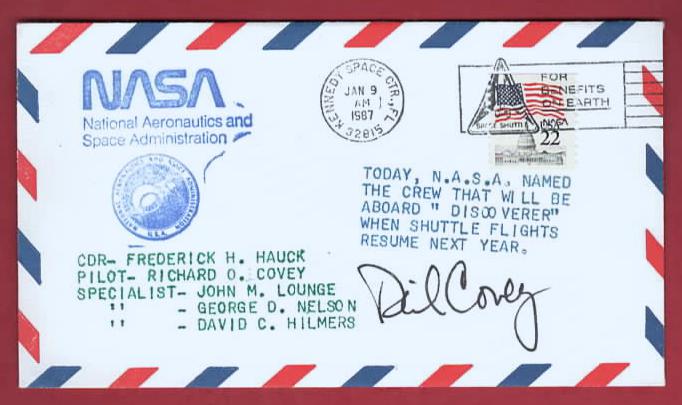 NASA
National Aeronautics and
Space Administration
KENNEDY SPACE CTR., FL
JAN 9
AM
1987
32815
FOR
BENEFITS
ON EARTH
SPACE SHUTTLE
NASA
22
NATIONAL AERONAUTICS AND SPACE ADMINISTRATION
U.S.A.
TODAY, N.A.S.A. NAMED
THE CREW THAT WILL BE
ABOARD " DISCOVERER"
WHEN SHUTTLE FLIGHTS
RESUME NEXT YEAR.
CDR- FREDERICK H. HAUCK
PILOT- RICHARD O. COVEY
SPECIALIST- JOHN M. LOUNGE
" - GEORGE D. NELSON
" - DAVID C. HILMERS
Dick Covey